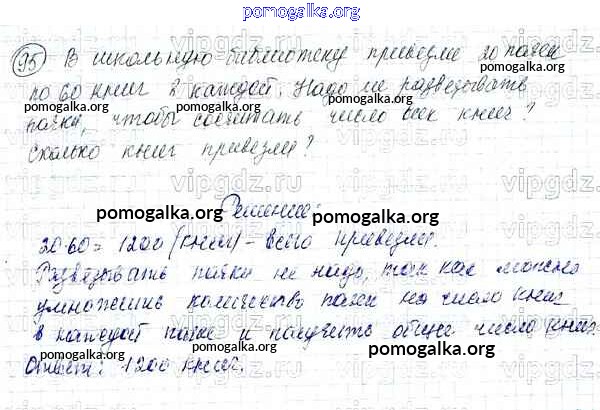 pomogalka.org
95 В школьную библиотеку привезли 20 пачек
по 60 книг в каждой. Надо ли развязывать
пачки, чтобы сосчитать число всех книг?
Сколько книг привезли?
Решение:
20·60=1200 (книг) - всего привезли.
Развязывать пачки не надо, так как можно
умножить количество пачек на число книг
в каждой пачке и получить общее число книг.
Ответ: 1200 книг.
pomogalka.org
pomogalka.org
pomogalka.org
pomogalka.org
pomogalka.org
pomogalka.org
pomogalka.org
vipgdz.ru
vipgdz.ru
vipgdz.ru
vipgdz.ru